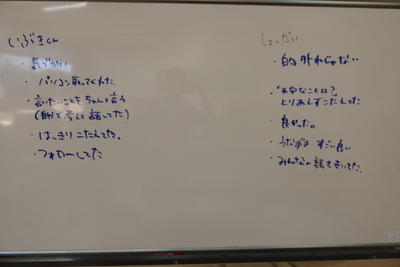 いぶきくん
・気づかい
・パソコン取ってくれた
・言いたいことをちゃんと言う
(自分で考えて話してた)
・はっきりこたえてた。
・フォローしてた
しょーだい
・的外れじゃない
・「不安なことは?」
とりあえずこたえてた
・良かった。
・うなずき すごい良い
・みんなの話をきいてた。